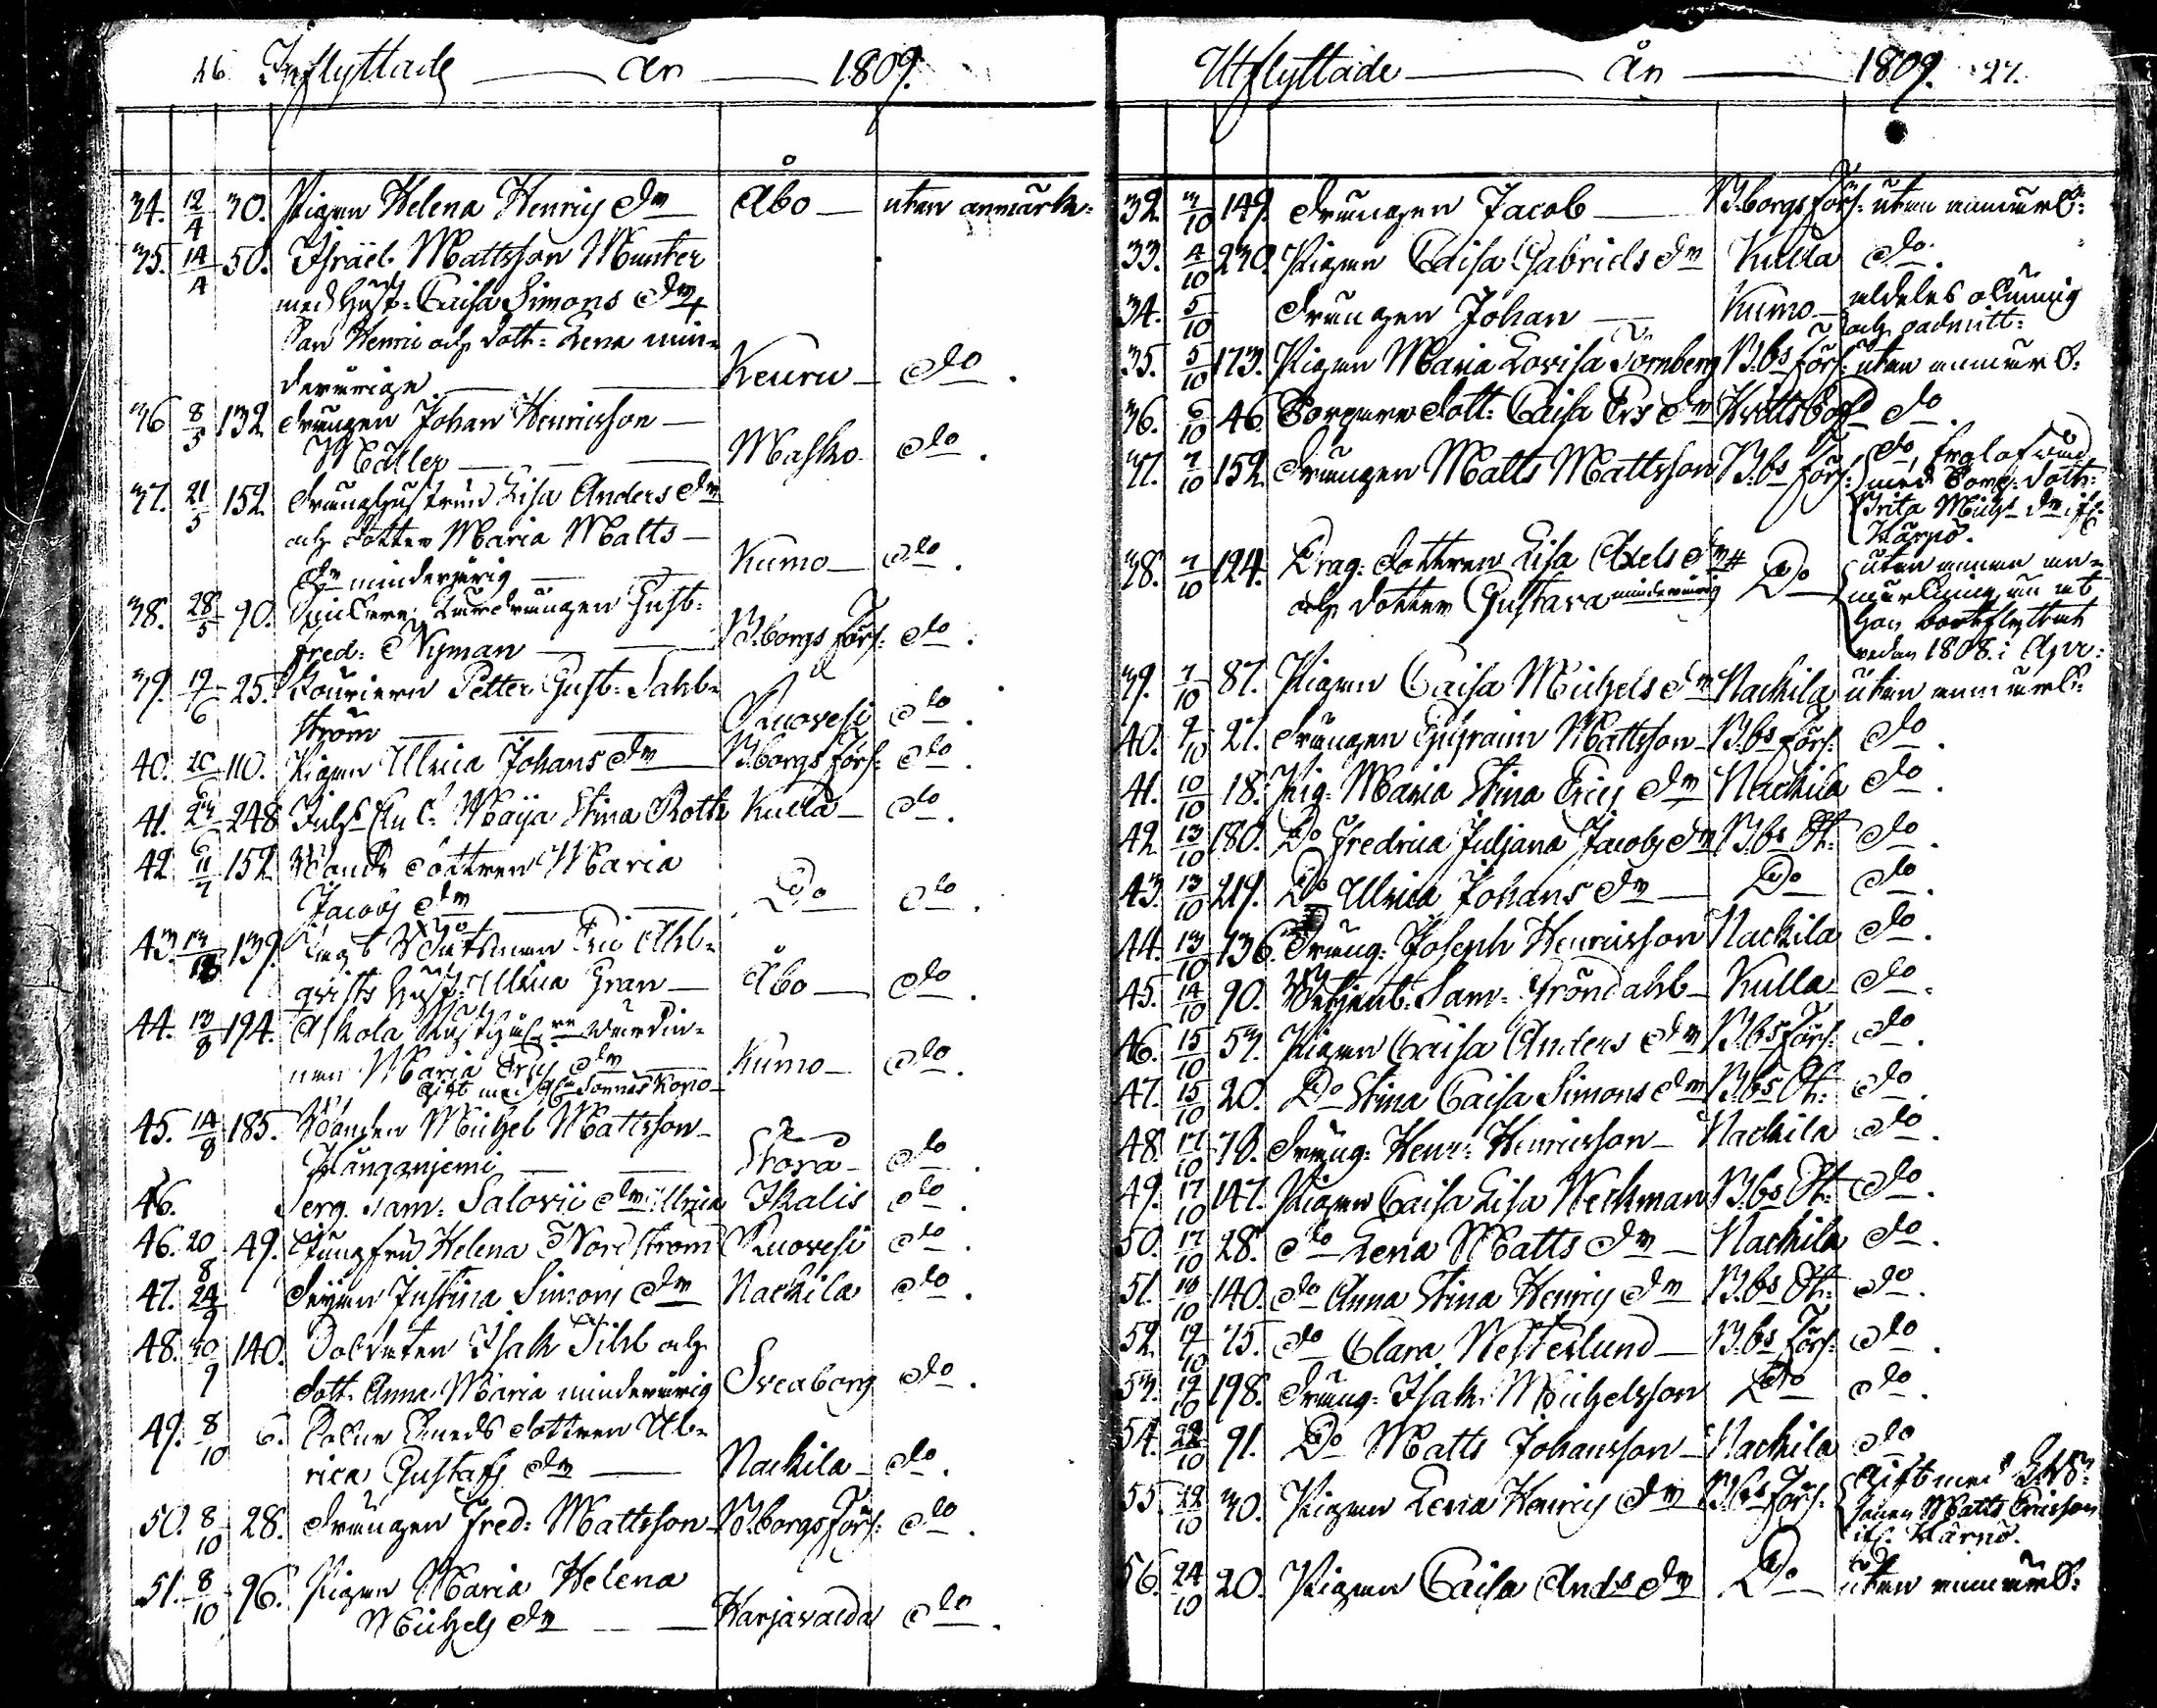 26. Inflyttade — år — 1809.
34. 12/4 30. Pigan Helena Henrics dr — Åbo — utan anmärkn:
35. 14/4 50. Israel Mattsson Munter
med Hust: Caisa Simons dr,
Son Henric och dott: Lena min-
derårige — Keuru — do.
36 8/5 132 drängen Johan Henricsson —
Måller — Masko do.
37. 21/5 152. dränghustrun Lisa Anders dr
och dotter Maria Matts —
dr minderårig — Kumo — do.
38. 28/5 90. drängen Gust:
Fred: Nyman — B:borgs förs: do.
39. 19/6 25. Petter Gust: Sahl-
ström — Ruovesi do.
40. 20/6 110. Pigan Ulrica Johans dr — B:borgs förs: do.
41. 24/6 248 Maja Stina Roth Kulla — do.
42 11/7 152 dottren Maria
Jacobs dr — Do — do.
43. 139. Båtsman Eric Ahl-
qvists Hust: Ulrica Gran — Åbo — do.
44. 13/8 194. Askola värdin-
nan Maria Erics dr — Kumo — do.
Gift med
45. 14/8 185. Bonden Michel Mattsson —
Stora — do.
46. Serg. Sam: Salovii dr Ulrica Ikalis do.
46. 20/8 49. Jungfru Helena Nordström Ruovesi do.
47. 24/9 Pigan Justina Simons dr Nackila do.
48. 30/9 140. Soldaten Isak Pihl och
dott: Anna Maria minderårig Sveaborg do.
49. 8/10 6. dottren Ul-
rica Gustafs dr — Nackila — do.
50. 8/10 28. drängen Fred: Mattsson B:borgs förs: do.
51. 8/10 96. Pigan Maria Helena
Michels dr — Harjavalda do.
Utflyttade — år — 1809. 27.
32. 3/10 149. drängen Jacob — B:borgs förs: utan anmärk:
33. 4/10 230. Pigan Caisa Gabriels dr Kulla do.
34. 5/10 drängen Johan — Kumo — aldeles okunnig
och oadmitt:
35. 5/10 173. Pigan Maria Lovisa Törnberg B:bs förs: utan anmärk:
36. 6/10 46. Torpare dott: Caisa Ers dr do.
37. 7/10 152. drängen Matts Mattsson B:bs förs: do, trolofvad
med Torp: dott:
Brita Michs dr
Kärpö.
38. 7/10 124. Drag: dottren Lisa Axels dr
och dotter Gustava minderårig Do — utan annan an-
märkning än at
hon bortflyttat
redan 1808 i Apr:
39. 7/10 87. Pigan Caisa Michels dr Nackila utan anmärk:
40. 9/10 27. drängen Ephraim Mattsson — B:bs förs: do.
41. 10/10 18. Pig: Maria Stina Erics dr Nackila do.
42 13/10 180. Do Fredrica Juliana Jacobs dr B:bs St: do.
43. 13/10 219. Do Ulrica Johans dr — Do do.
44. 13/10 136. Dräng: Joseph Henricsson Nackila do.
45. 14/10 90. Betjent: Sam: Gröndahl — Kulla do.
46. 15/10 57. Pigan Caisa Anders dr B:bs förs: do.
47. 15/10 20. Do Stina Caisa Simons dr B:bs St: do.
48. 17/10 78. dräng: Henr: Henricsson — Nackila do.
49. 17/10 147. Pigan Caisa Lisa Weckman B:bs St: do.
50. 17/10 28. do Lena Matts dr — Nackila do.
51. 18/10 140. do Anna Stina Henrics dr B:bs St: do.
52. 19/10 75. do Clara Westerlund — B:bs förs: do.
53. 19/10 198. dräng: Isak Michelsson Do do.
54. 22/10 91. Do Matts Johansson — Nackila do
55. 22/10 30. Pigan Lena Henrics dr B:bs förs: Gift med
Matts Ericsson
Kärpö.
56. 24/10 20. Pigan Caisa Ands dr Do — utan anmärk: